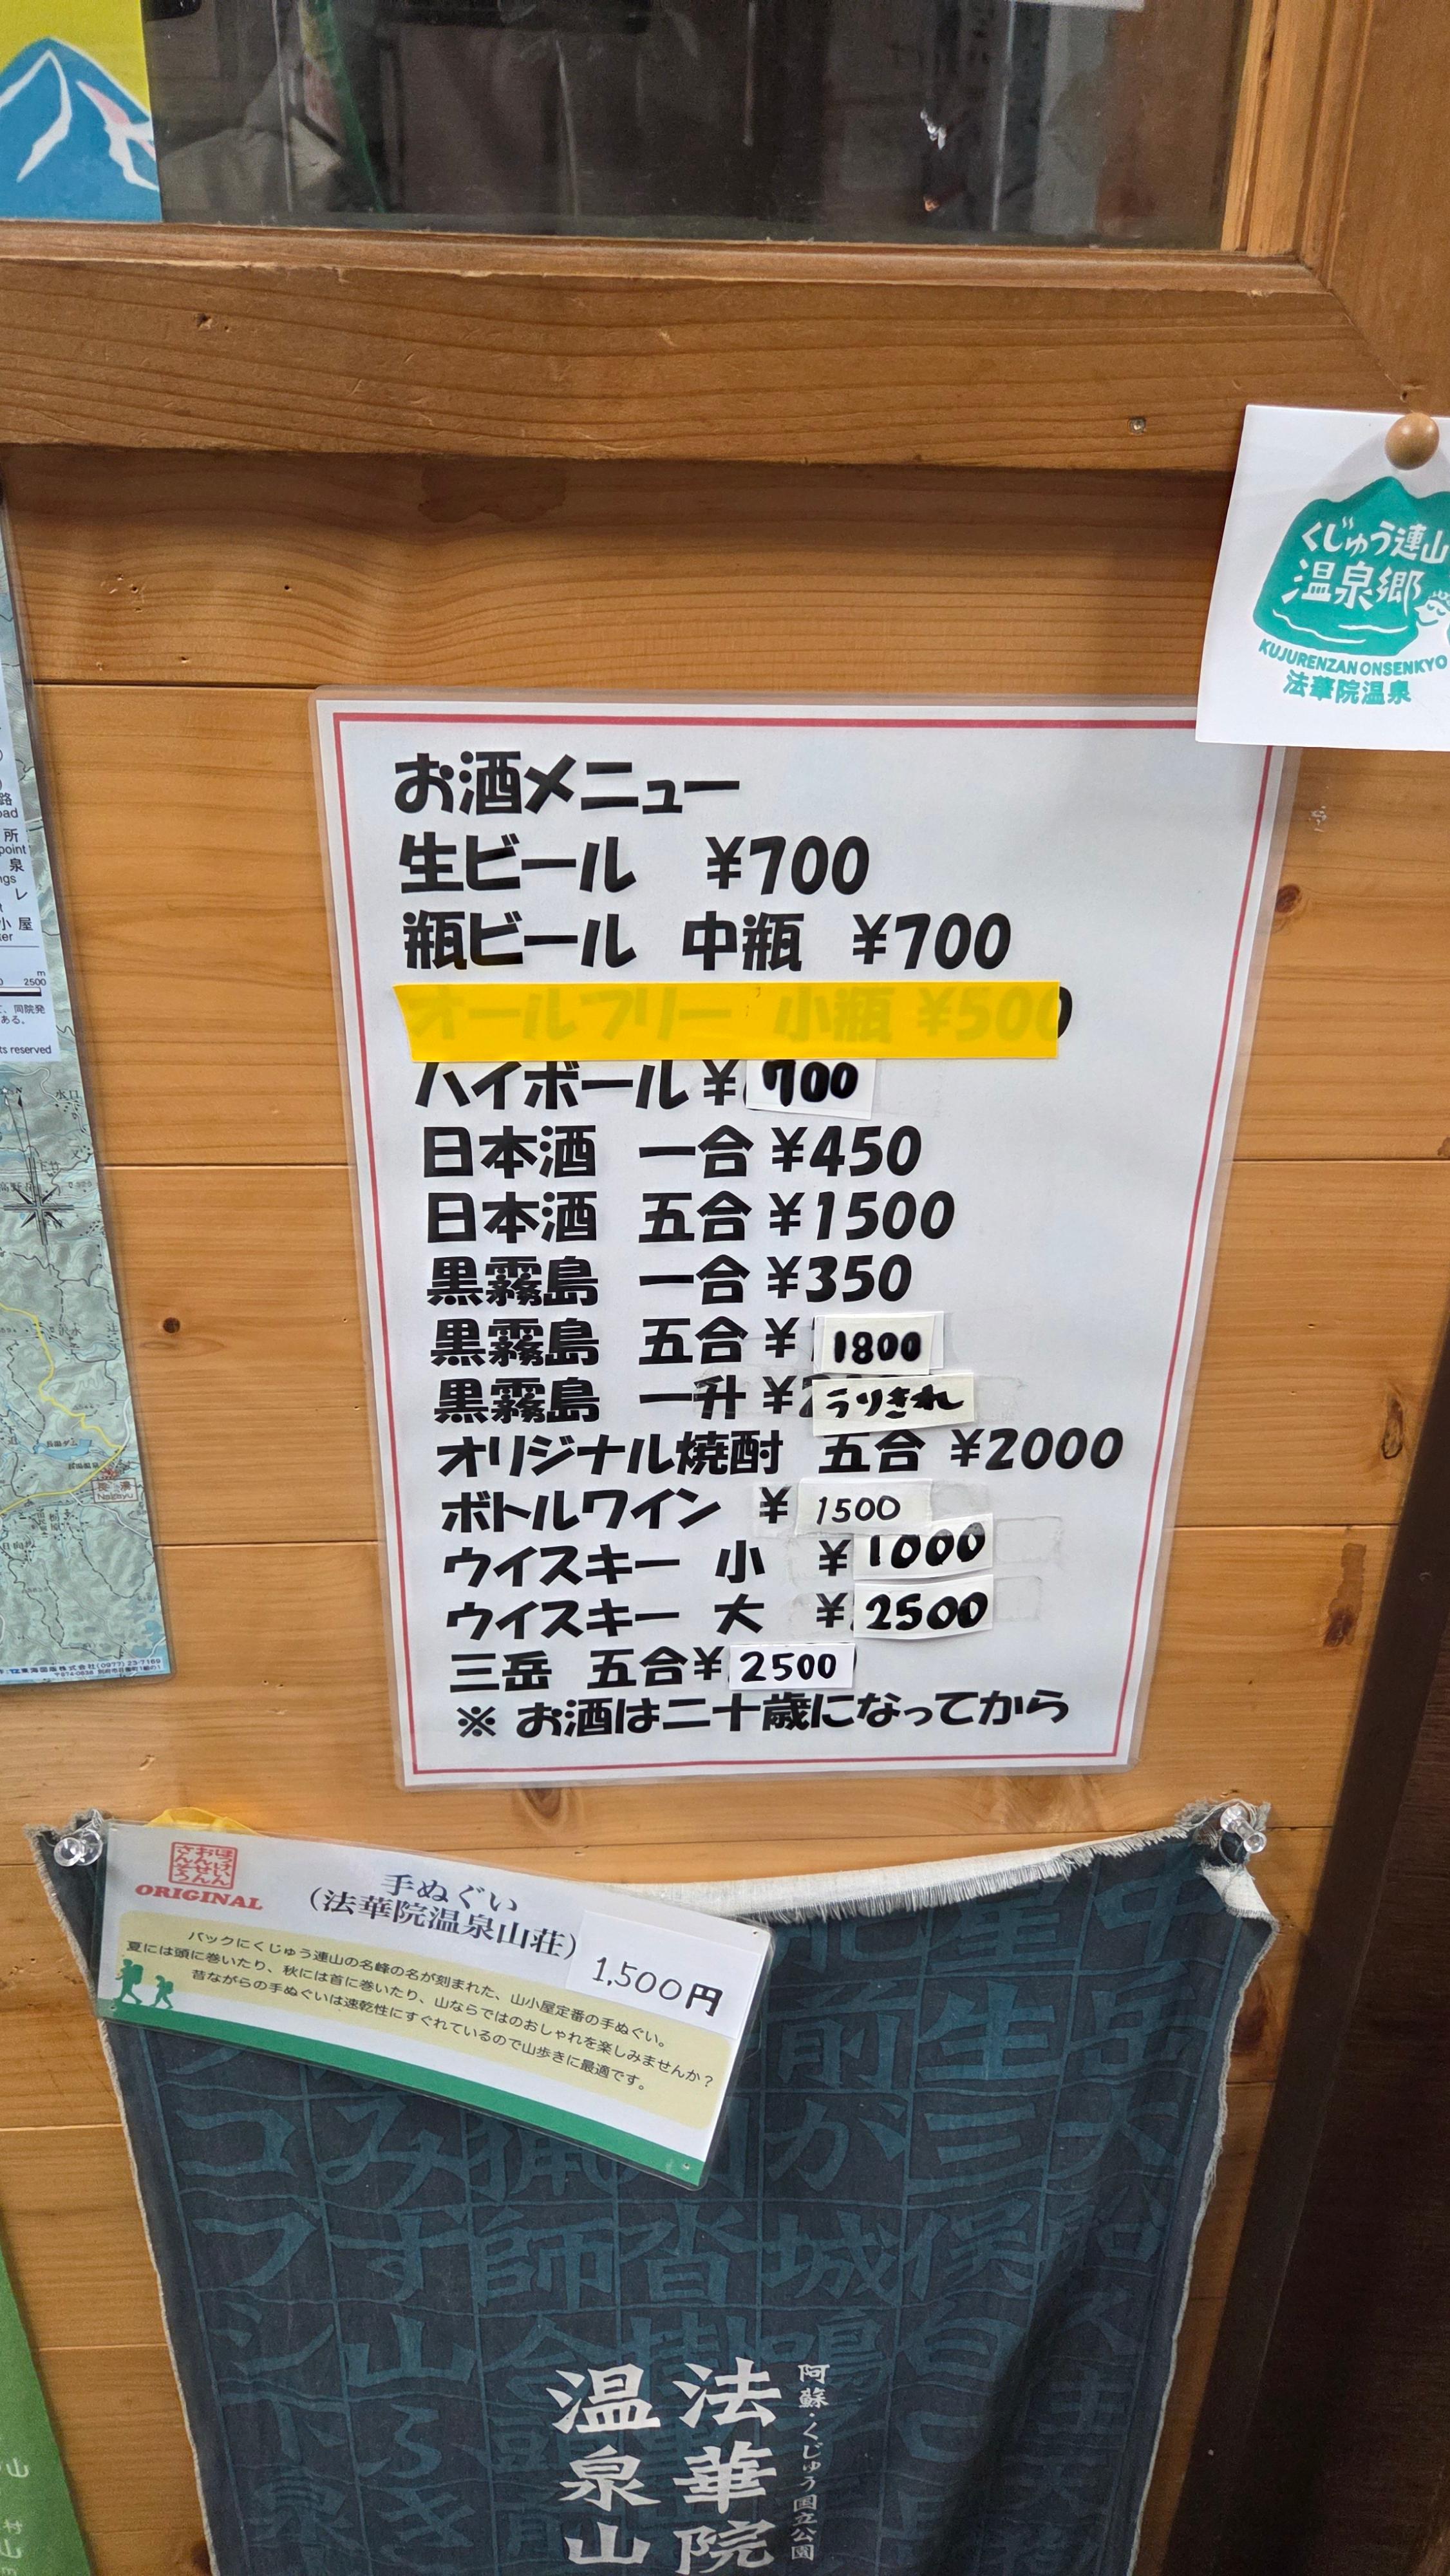 くじゅう連山
温泉郷
KUJURENZAN ONSENKYO
法華院温泉
お酒メニュー
生ビール ¥700
瓶ビール 中瓶 ¥700
オールフリー 小瓶 ¥500
ハイボール ¥700
日本酒 一合 ¥450
日本酒 五合 ¥1500
黒霧島 一合 ¥350
黒霧島 五合 ¥1800
黒霧島 一升 ¥うりきれ
オリジナル焼酎 五合 ¥2000
ボトルワイン ¥1500
ウイスキー 小 ¥1000
ウイスキー 大 ¥2500
三岳 五合 ¥2500
※ お酒は二十歳になってから
ほっけいん
おんせん
さんそう
ORIGINAL
手ぬぐい
（法華院温泉山荘）
1,500円
バックにくじゅう連山の名峰の名が刻まれた、山小屋定番の手ぬぐい。
夏には頭に巻いたり、秋には首に巻いたり、山ならではのおしゃれを楽しみませんか？
昔ながらの手ぬぐいは速乾性にすぐれているので山歩きに最適です。
阿蘇・くじゅう国立公園
法華院
温泉山
路
所
泉
小屋
2500
m